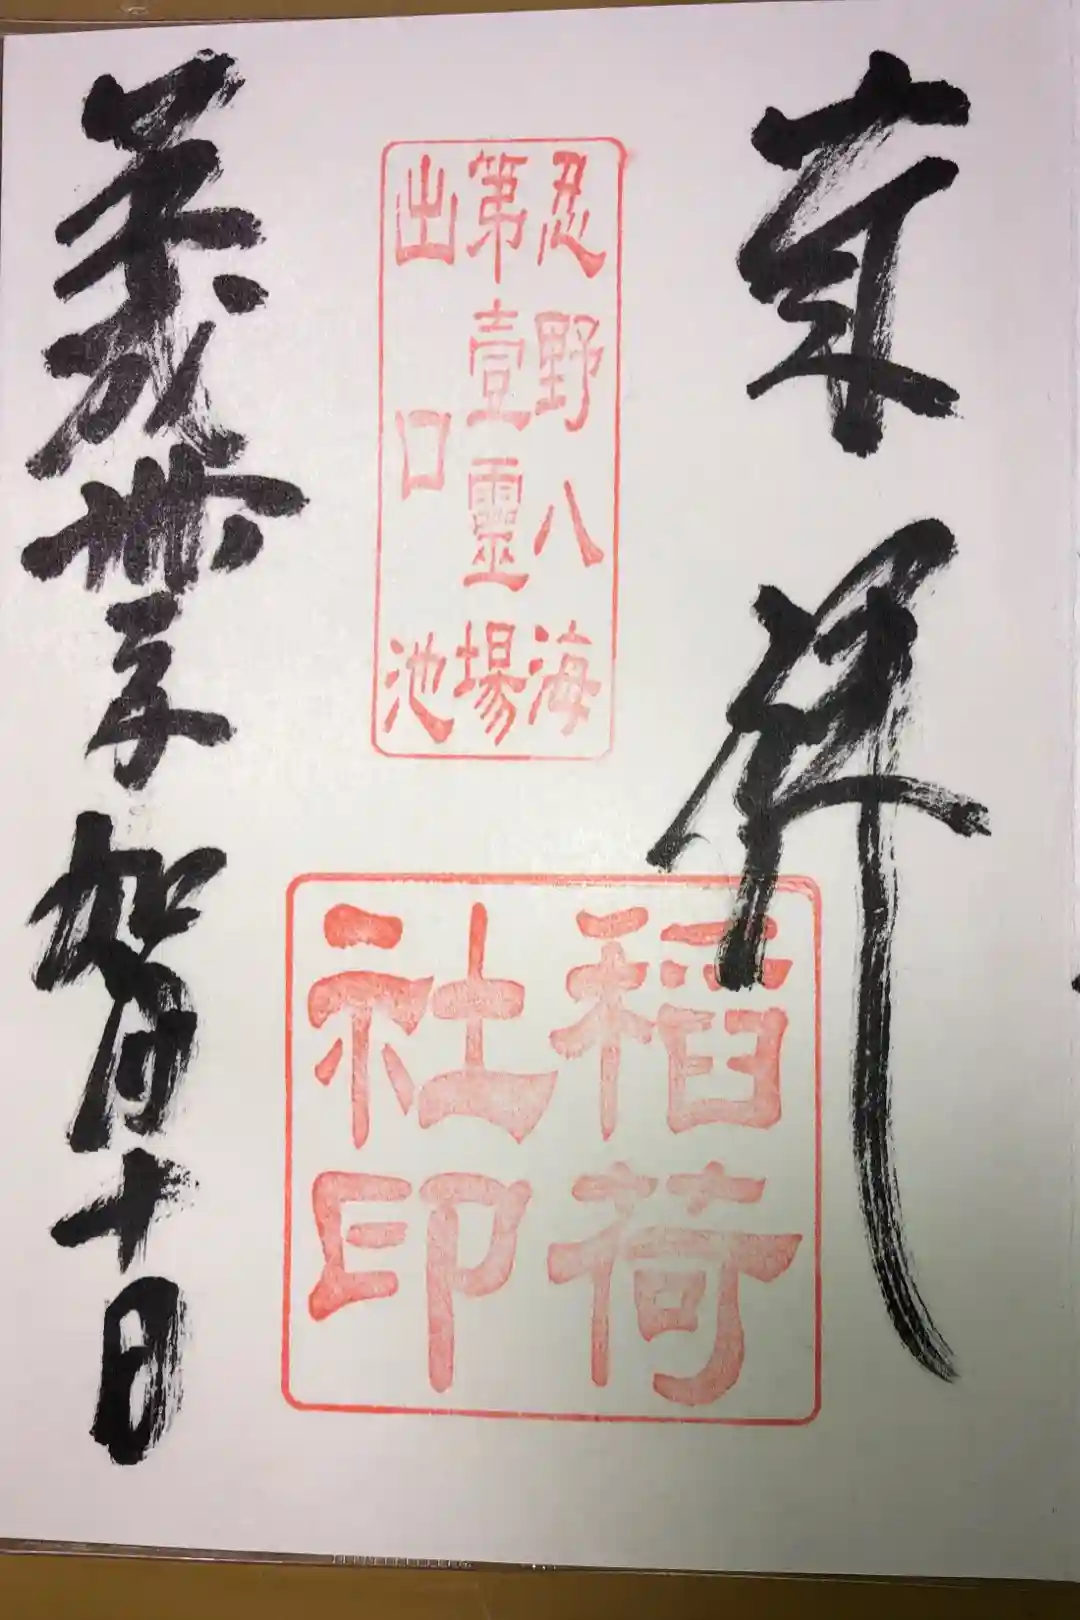 奉拝
忍野八海
第壹靈場
出口池
稲荷
社印
平成 月十日